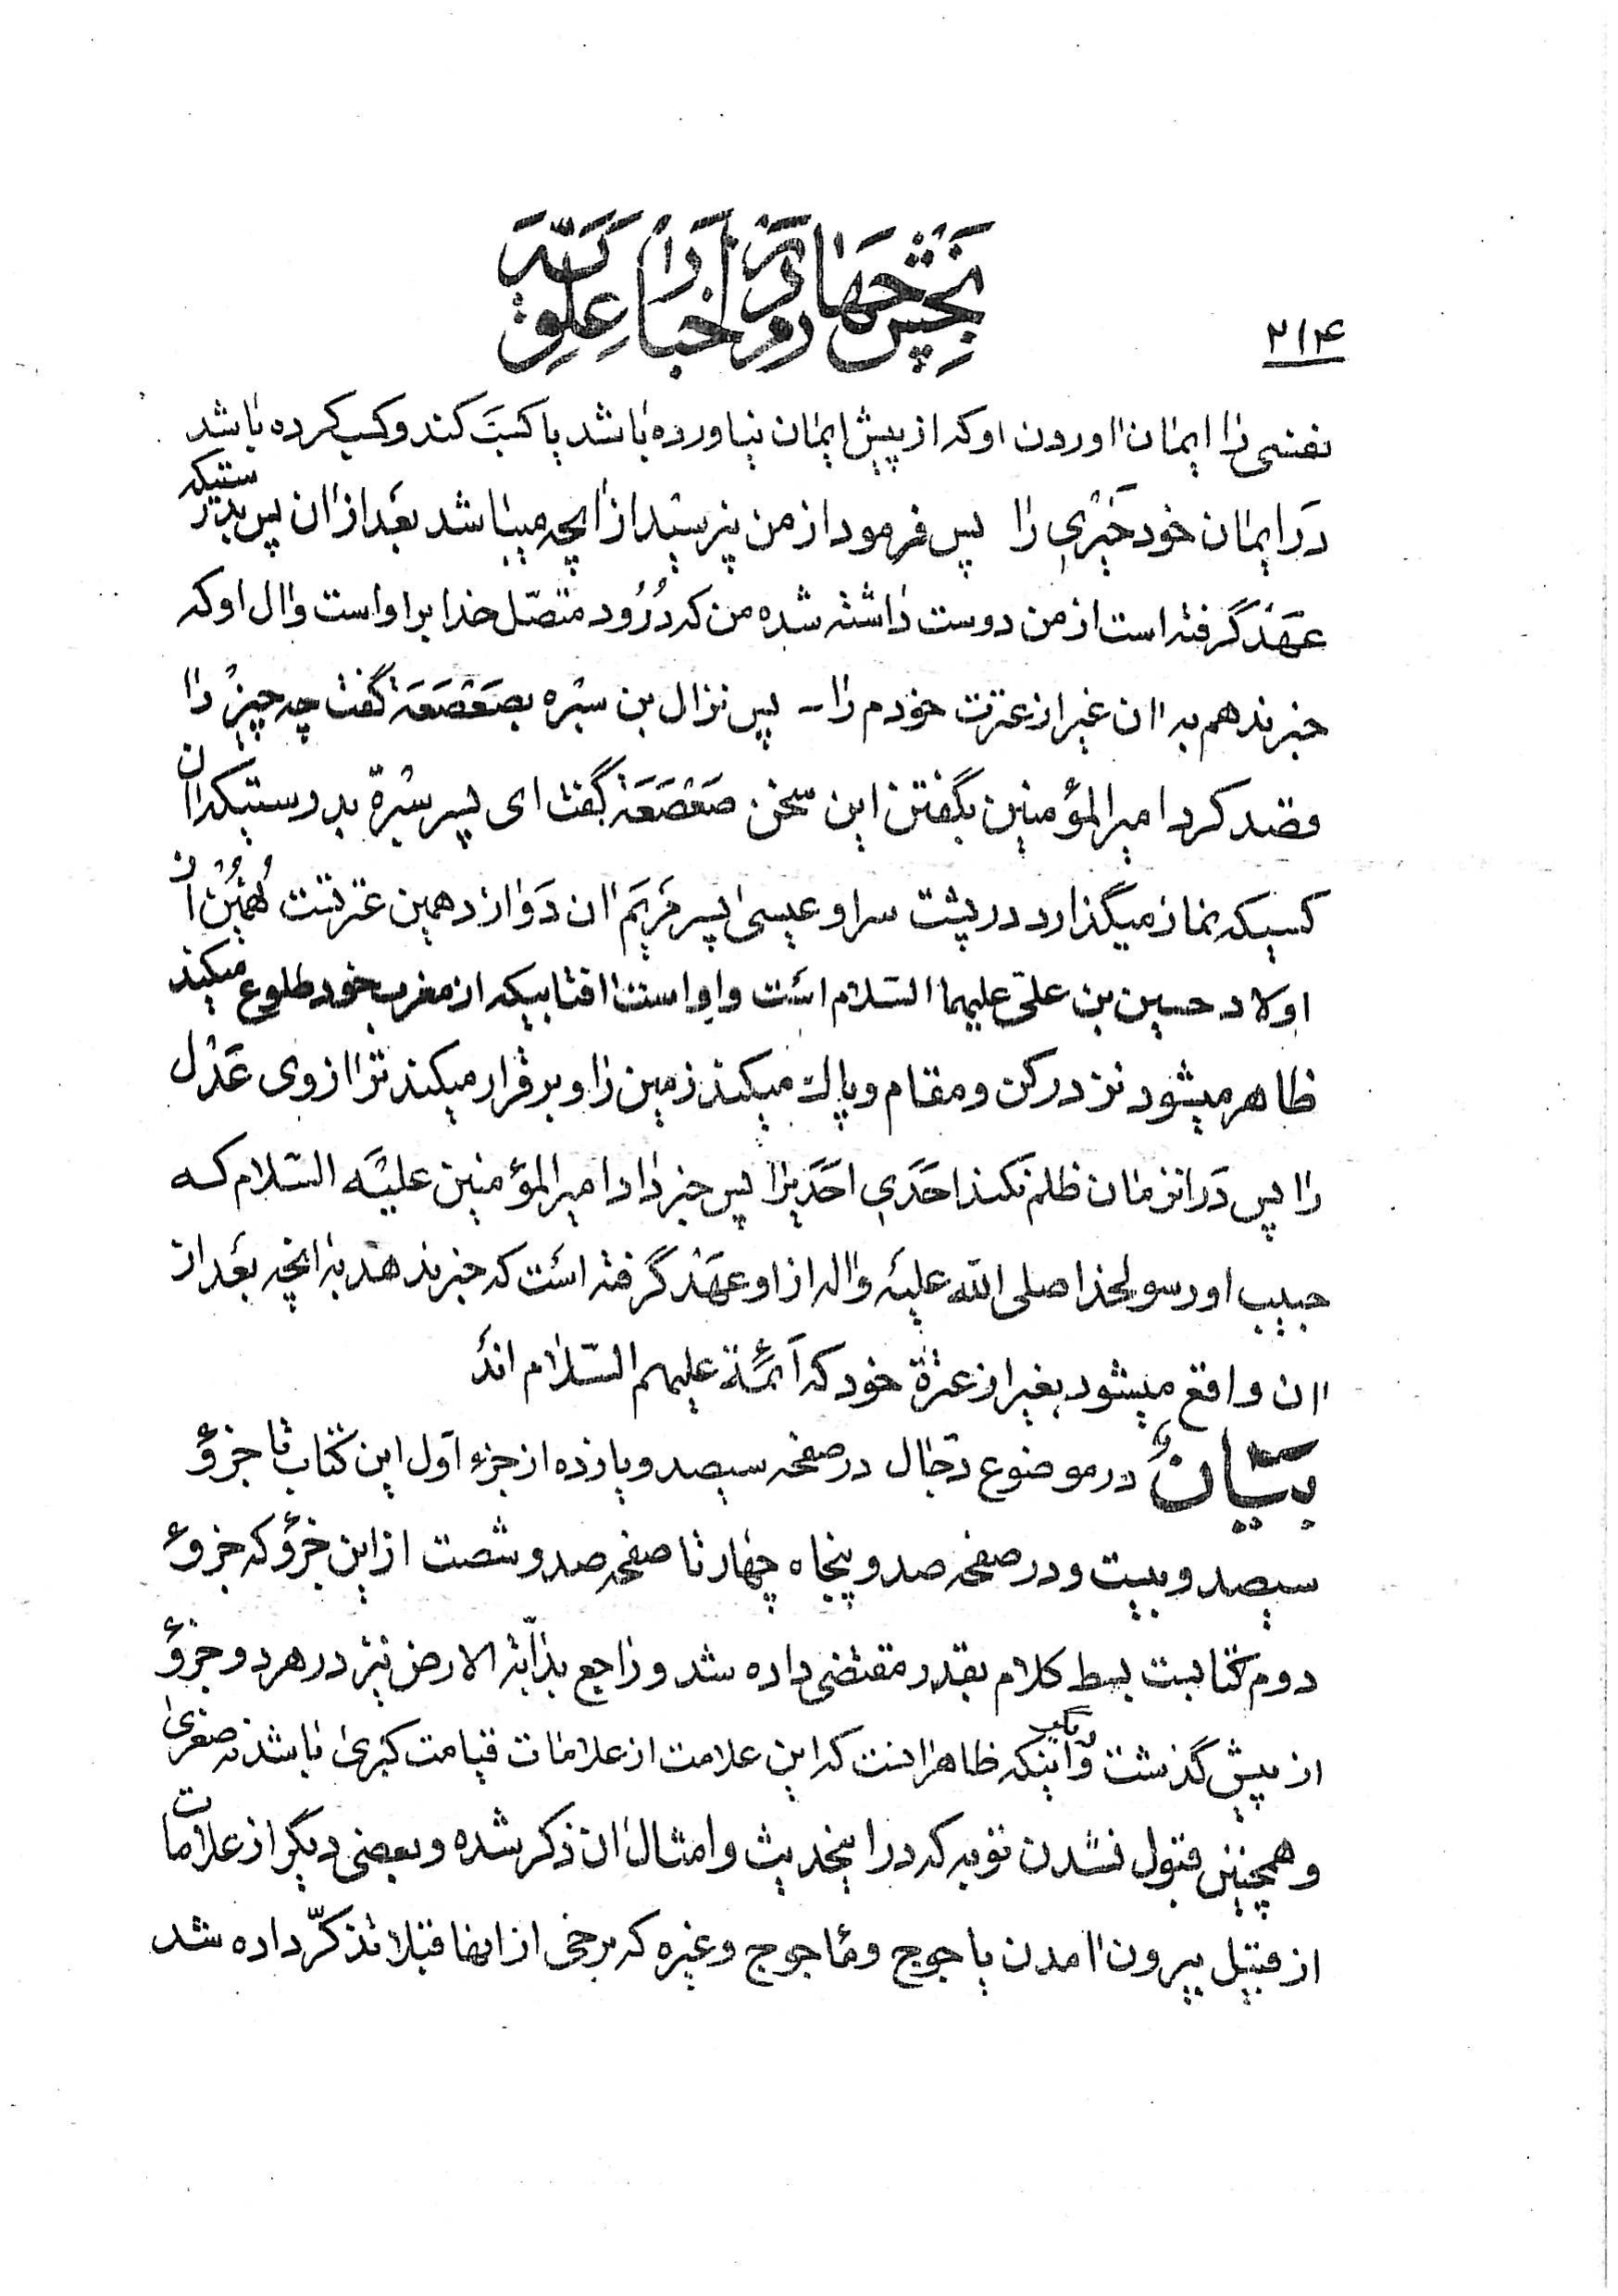 بخش چهارم
در اخبار علویّه
۲۱۴
نفسی را ایمان اوردن او که از پیش ایمان نیاورده باشد یا کسَبَ کند و کسب کرده باشد
دَر ایمان خود خَیْری را پس فرمود از من نپرسید از انچه میباشد بعَد از ان پس بدرستیکه
عَهَدْ گرفته است از من دوست داشته شده من که دُرُود متصّل خدا بر او است و ال او که
خبر ندهم به ان غیر از عترت خودم را ــ پس نزال بن سبْره بصَعْصَعَة گفت چه چیزْ را
قصْد کرد امیر المؤمنین بگفتن این سخن صَعْصَعَة گفت ای پسر سَبْرة بدرستیکه ان
کسیکه نماز میگذارد در پشت سر او عیسیٰ پسر مَرْیَم ان دَوازدهمین عترتست نُهُمین از
اولاد حسین بن علیّ علیهما السّلام اسْت و او است افتابیکه از مغرب خود طلوع میکند
ظاهر میشود نزد رکن و مقام و پاک میکند زمین را و برقرار میکند ترازوی عَدْل
را پس دَر انزمان ظلم نکند احَدَی احَدَیرا پس خبر داد امیر المؤمنین علیْه السّلام که
حبیب او رسولخدا صلی الله علیْه و اله از او عَهَدْ گرفته اسْت که خبر ندهد به انچه بعَد از
ان واقع میشود بغیر از عترة خود که اَئمَّة علیهم السّلام اندْ
بَیٰانٌ در موضوع دجّال در صفحه سیصد و یازده از جزء اول این کتاب تا جزؤ
سیصد و بیست و در صفحه صد و پنجاه چهار تا صفحه صد و شصت از این جزؤ که جزؤ
دوم کتابست بسط کلام بقدر مقتضی داده شد و راجع بدابّة الارض نیز در هر دو جزؤ
از پیش گذشت و اینکه ظاهر انست که این علامت از علامات قیامت کبریٰ باشد نه صغریٰ
و همچنین قبول نشدن توبه که در اینحدیث و امثال ان ذکر شده و بعضی دیگر از علامات
از قبیل بیرون امدن یاجوج و ماجوج و غیره که برخی از انها قبلا تذکّر داده شد